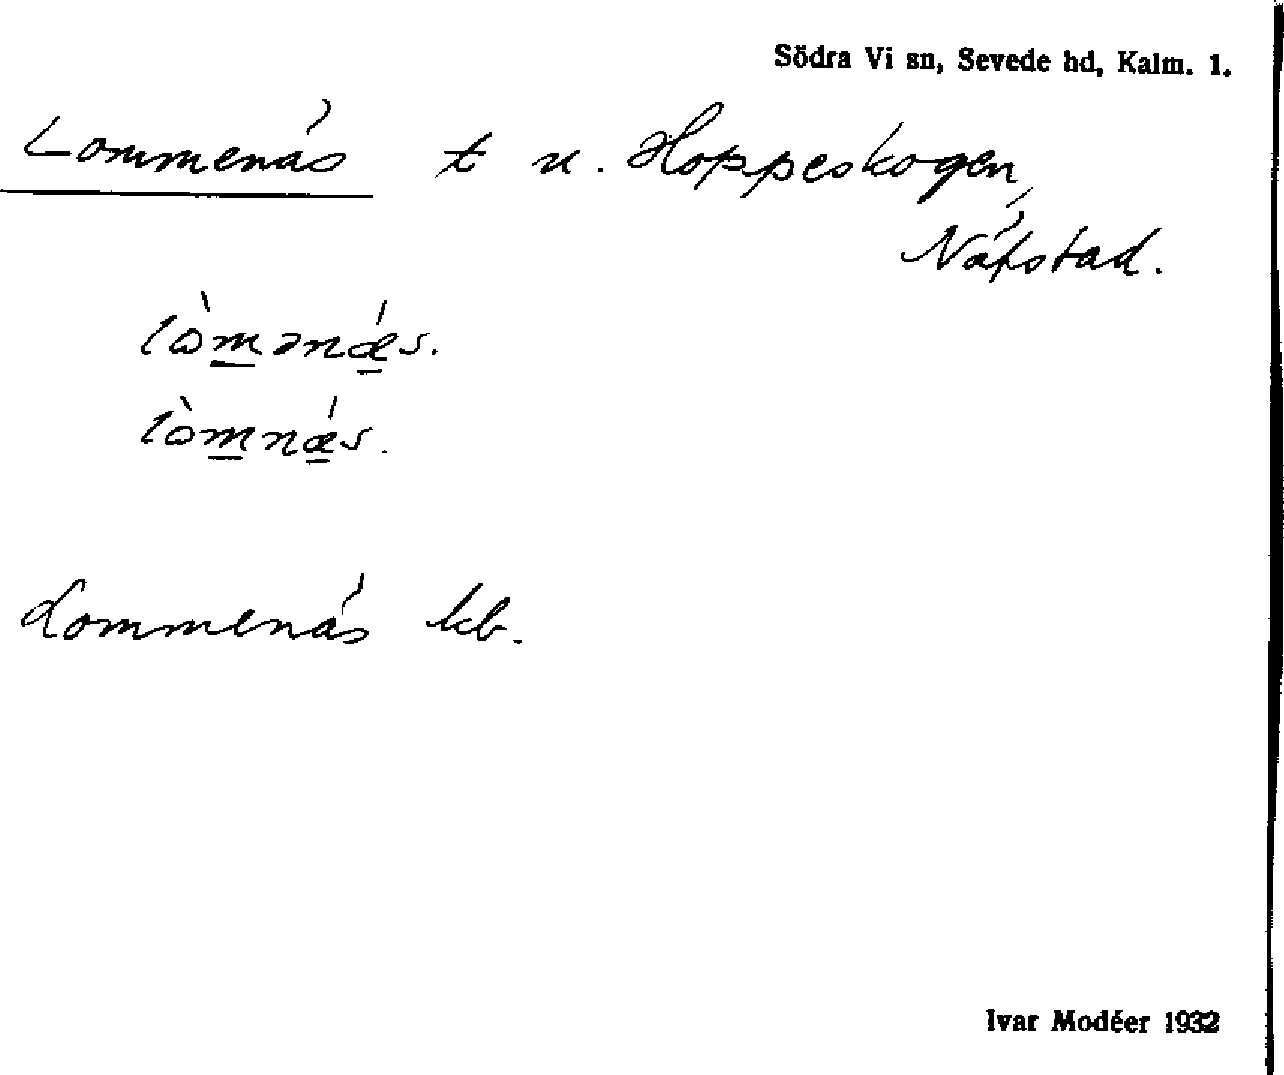 Södra Vi sn, Sevede hd, Kalm. l.
Lommenäs t u. Hoppeskogen,
Näfstad.
lòmənǽs.
lòmnǽs.
Lommenäs kb.
Ivar Modéer 1932